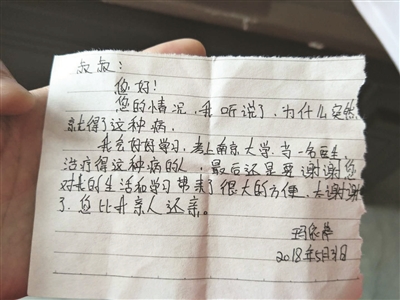 叔叔：
您好！
您的情况，我听说了，为什么突然
就得了这种病。
我会好好学习，考上南京大学，当一名医生
治疗得这种病的人，最后还是要谢谢您
对我的生活和学习带来了很大的方便，太谢谢
了，您比我亲人还亲。
2018年5月31日